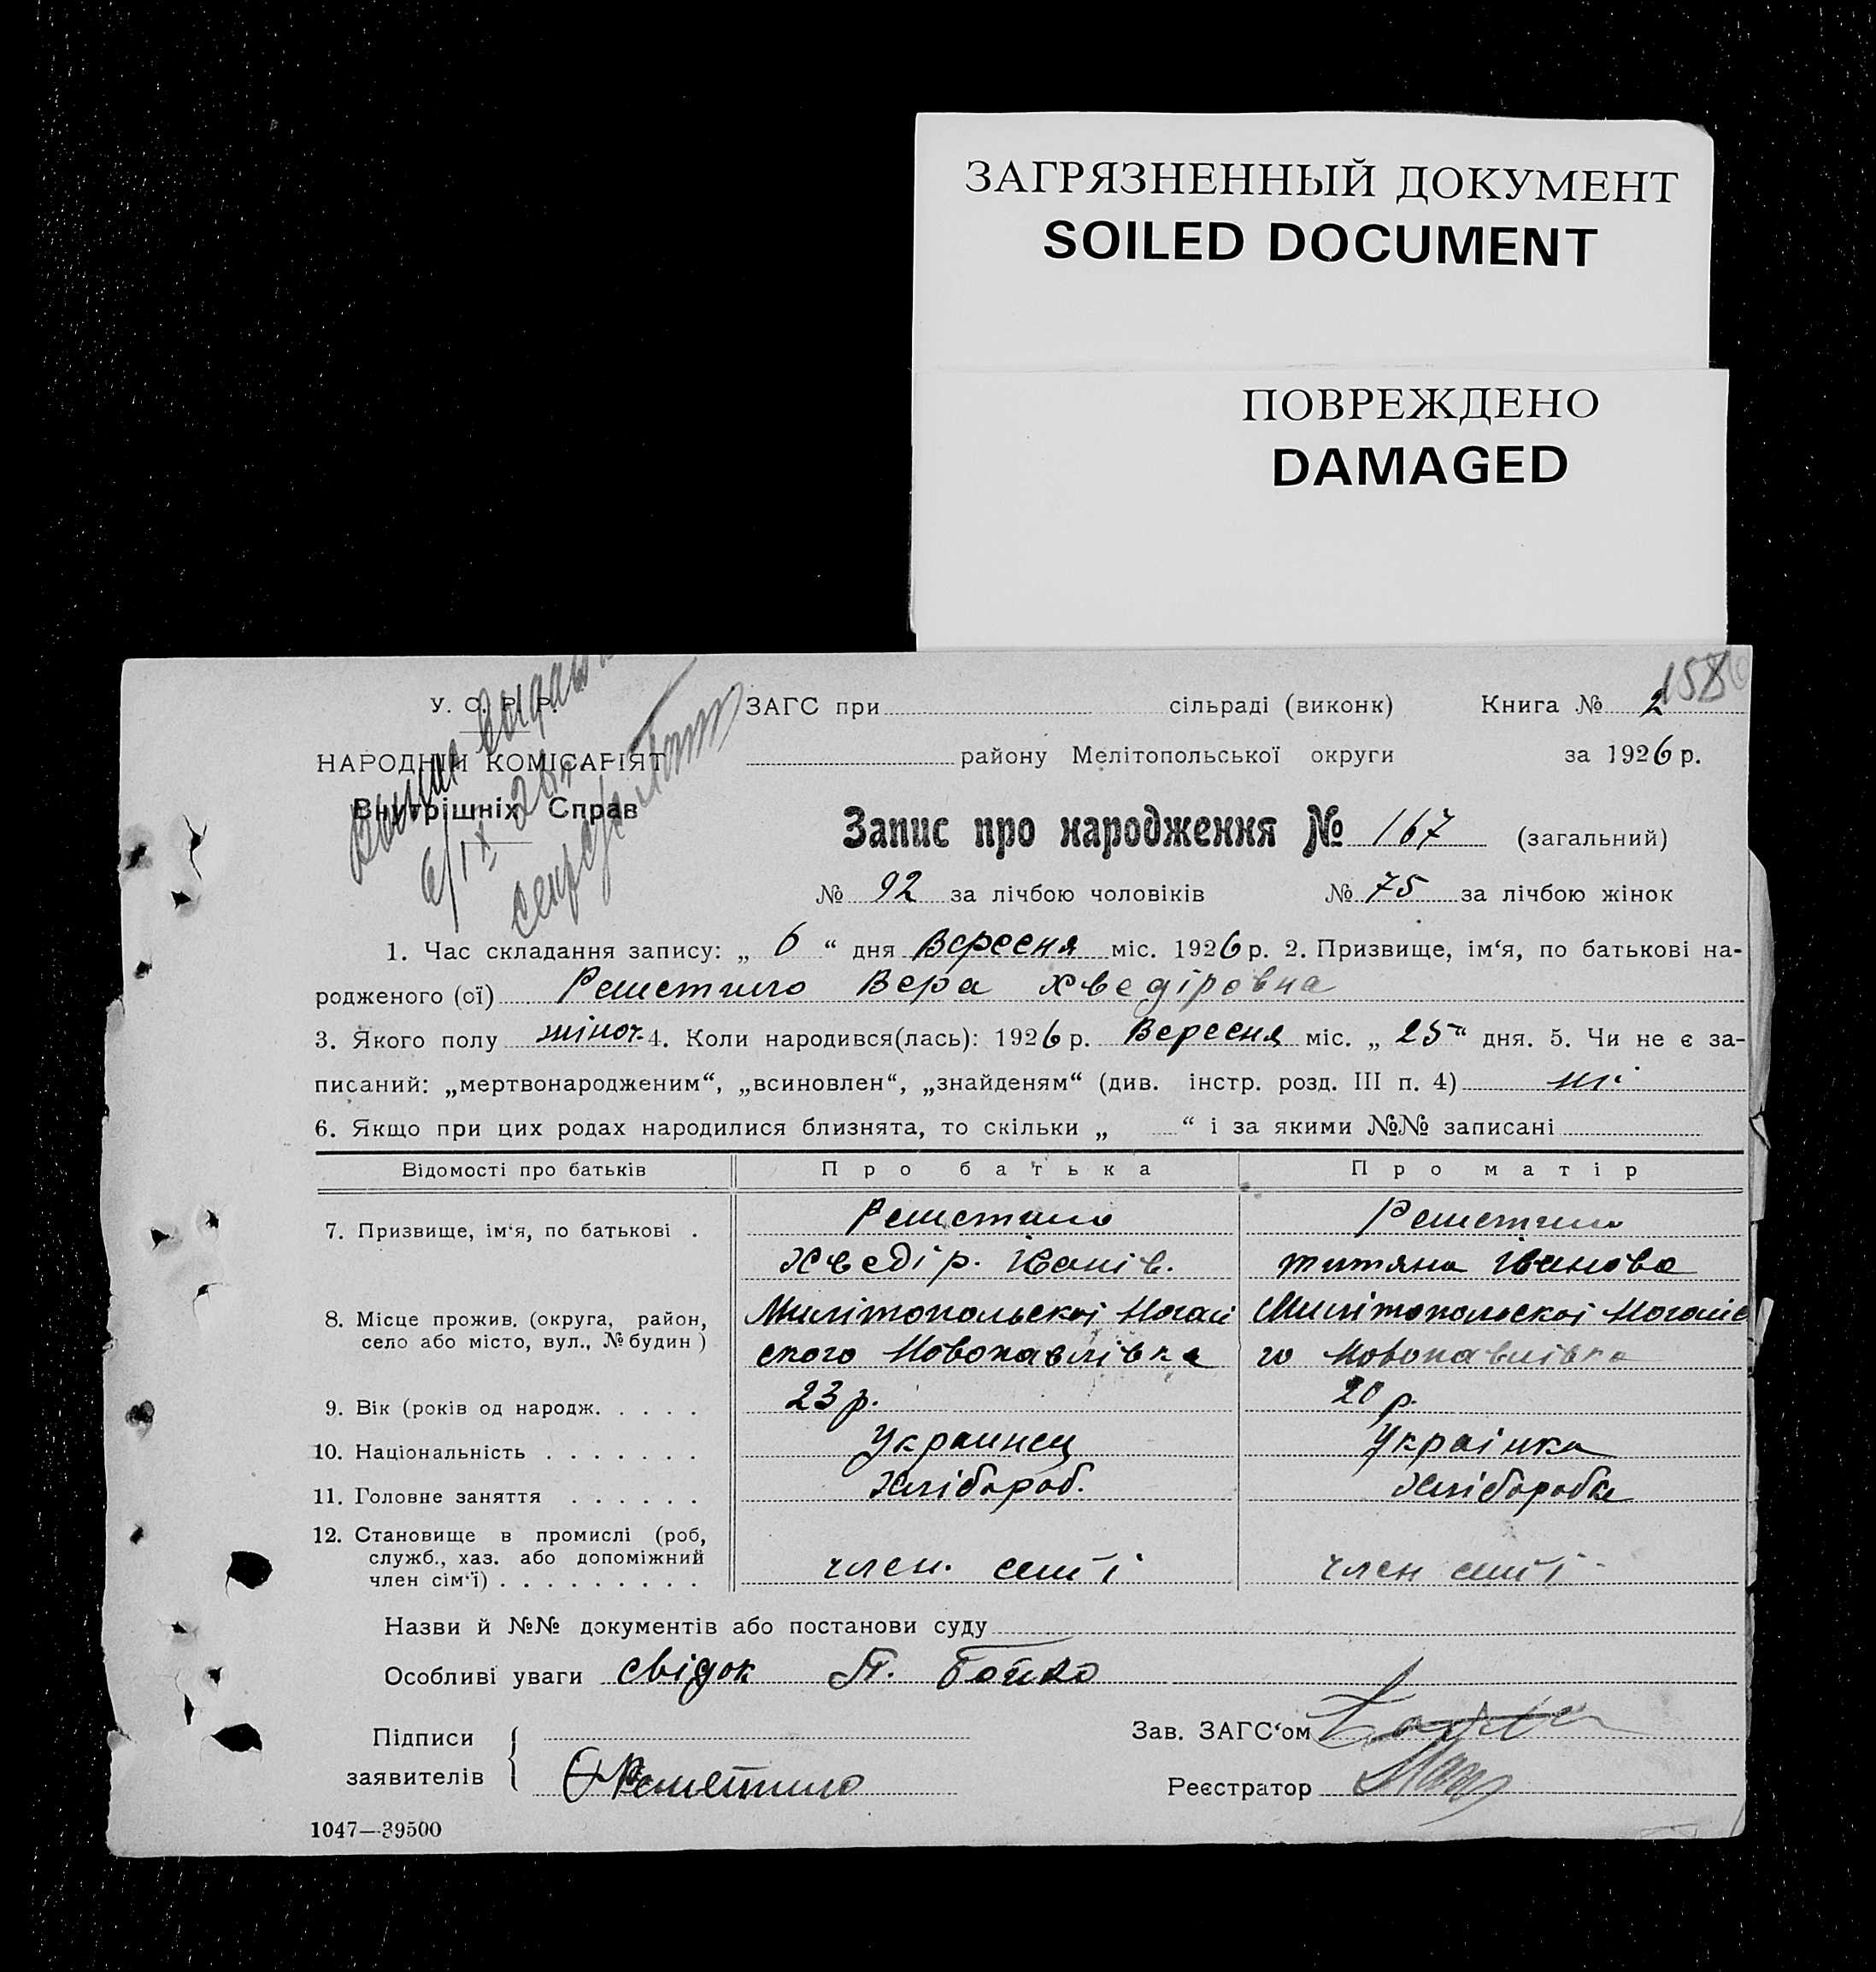 ЗАГРЯЗНЕННЫЙ ДОКУМЕНТ
SOILED DOCUMENT
ПОВРЕЖДЕНО
DAMAGED
У. С. Р. Р.
НАРОДНІЙ КОМІСАРІЯТ
Внутрішніх Справ
6/IX 26
ЗАГС при сільраді (виконк) Книга № 2
району Мелітопольської округи за 1926 р.
Запис про народження № 167 (загальний)
№ 92 за лічбою чоловіків № 75 за лічбою жінок
1. Час складання запису: „ 6 “ дня Вересня міс. 1926 р. 2. Призвище, ім‘я, по батькові на-
родженого (ої) Решетило Вера Хведіровна
3. Якого полу жіноч. 4. Коли народився(лась): 1926 р. Вересня міс. „ 25 “ дня. 5. Чи не є за-
писаний: „мертвонародженим“, „всиновлен“, „знайденям“ (див. інстр. розд. III п. 4) ні
6. Якщо при цих родах народилися близнята, то скільки „ “ і за якими №№ записані
Відомості про батьків Про батька Про матір
7. Призвище, ім‘я, по батькові . Решетило Решетило
Хведір. Іванів. Титяна Іванова
8. Місце прожив. (округа, район, Милітопольскої Ногай Милітопольскої Ногайс
село або місто, вул., № будин ) ского Новопавлівка го Новопавлівка
9. Вік (років од народж. . . . . 23 р. 20 р.
10. Національність . . . . . . . Украинец Україика
11. Головне заняття . . . . . . Хлібороб. Хліборобка
12. Становище в промислі (роб,
служб., хаз. або допоміжний
член сім‘ї) . . . . . . . . . член. симї член симї
Назви й №№ документів або постанови суду
Особливі уваги свідок П. Бойко
Підписи
заявителів Решетило
Зав. ЗАГС‘ом
Реєстратор
1047—39500